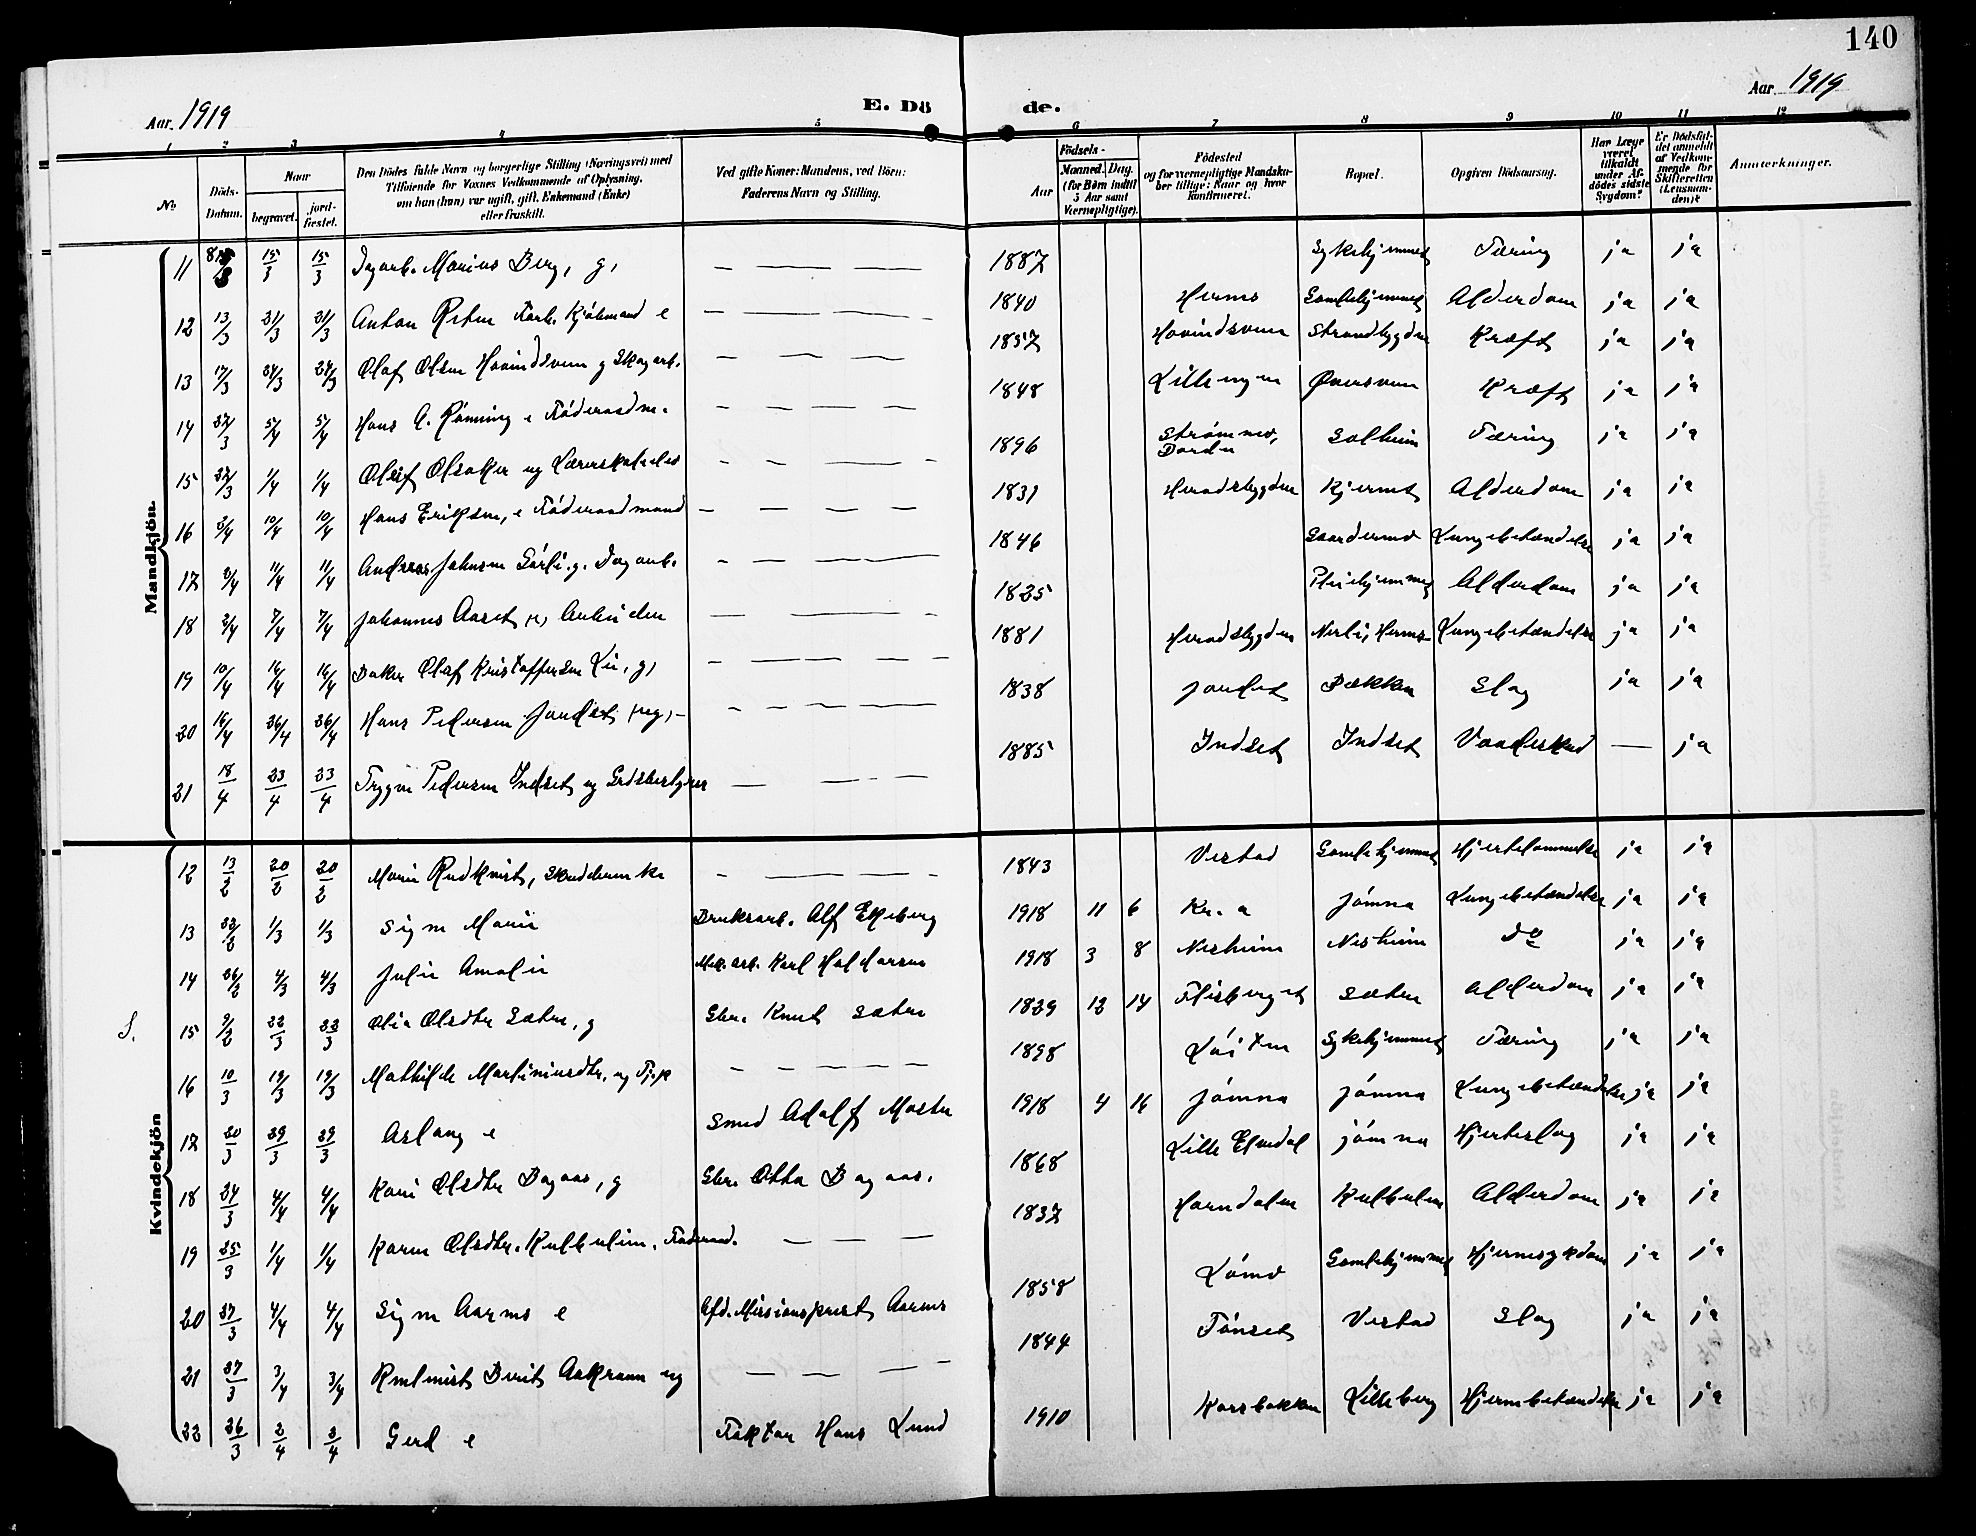 140
Aar. 1919 E. Dö de. Aar. 1919
1 2 3 4 5 6 7 8 9 10 11 12
No. Döds-Datum. Naar begravet. jord-fæstet. Den Dödes fulde Navn og borgerlige Stilling (Næringsvei) med Tilföiende for Voxnes Vedkommende af Oplysning, om han (hun) var ugift, gift, Enkemand (Enke) eller fraskilt. Ved gifte Koner: Mandens, ved Börn: Faderens Navn og Stilling. Födsels- Aar Maaned. Dag. (for Børn indtil 5 Aar samt Værnepligtige). Födested og for værnepligtige Mandskaber tillige: Naar og hvor konfirmeret. Bopæl. Opgiven Dödsaarsag. Har Læge været tilkaldt under Afdödes sidste Sygdom? Er Dödsfaldet anmeldt af Vedkommende for Skifteretten (Lensmanden)? Anmærkninger.
Mandkjön.
11 8/3 15/3 15/3 Dagarb. Marius Berg, g, — — — — 1887 Sykehjemmet Tæring ja ja
12 13/3 21/3 21/3 Anton Forh. Kjöbmand e — — — — 1840 Hernes Gamlehjemmet Alderdom ja ja
13 17/3 24/3 24/3 Olaf Olsen Hovindsveen g Skogarb. — — — — 1857 Hovindsveen Strandbygden Kræft ja ja
14 5/4 5/4 Hans A. Rönning e Föderaadsm. — — — — 1848 Lillengen Øversveen Kræft ja ja
15 1/4 1/4 Olaf ug Lærerskoleelev — — — — 1896 Strömmen, Solheim Tæring ja ja
16 3/4 10/4 10/4 Hans Eriksen, e Föderaadmand — — — — 1831 Heradsbygden Kjernet Alderdom ja ja
17 11/4 11/4 Andreas Johnsen Sörli. g. Dagarb. — — — — 1846 Gaardermo Lungebetændelse ja ja
18 2/4 7/4 7/4 Johannes Aaset, e, Arbeider — — — — 1825 Pleiehjemmet Alderdom ja ja
19 10/4 16/4 16/4 Baker Olaf Kristoffersen Lie, g, — — — — 1881 Heradsbygden Nerli, Hernes Lungebetændelse ja ja
20 16/4 26/4 26/4 Hans Pedersen Jordet, ug, — — — — — 1838 Jordet Bækken Slag ja ja
21 18/4 23/4 23/4 Trygve Pedersen Indset ug Grdsbestyrer — — — — 1885 Indset Indset Vaadeskud — ja
Kvindekjön
12 13/2 20/2 20/2 Marie Rudkvist, Skredderenke — — — — 1843 Vestad Gamlehjemmet Hjertelammelse ja ja
13 22/2 1/3 1/3 Signe Marie Bruksarb. Alf Ekeberg 1918 11 6 Kr.a Jömna Lungebetændelse ja ja
14 26/2 4/3 4/3 Julie Amalie Mek. arb. Karl Haldorsen 1918 3 8 Nesheim Nesheim do ja ja
S. 15 9/2 22/3 23/3 Olia Olsdtr Sæter, g Gbr. Knut Sæter 1829 12 14 Flisberget Sæter Alderdom ja ja
16 10/3 19/3 19/3 Mathilde Martiniusdtr. ug Tj.p — — — — — 1898 Löiten Sykehjemmet Tæring ja ja
17 20/3 29/3 29/3 Aslaug e Smed Adolf Moster 1918 4 16 Jömna Jömna Lungebetændelse ja ja
18 24/3 4/4 4/4 Kari Olsdtr Bagaas, g Gbr. Otto Bagaas. 1868 Lille Elvedal Jömna Hjerteslag ja ja
19 25/3 1/4 1/4 Karen Olsdtr. Kulbulien. Föderaad. — — — 1837 Horndalen Kulbulien Alderdom ja ja
20 27/3 4/4 4/4 Signe Aarnes e Afd. Missionsprest Aarnes 1858 Lömo Gamlehjemmet Hjernesykdom ja ja
21 27/3 3/4 3/4 Berit Aakrann ug — — — — 1844 Tönset Vestad Slag ja ja
22 26/3 2/4 2/4 Gerd e Faktor Hans Lund 1910 Korsbakken Lilleberg Hjernebetændelse ja ja